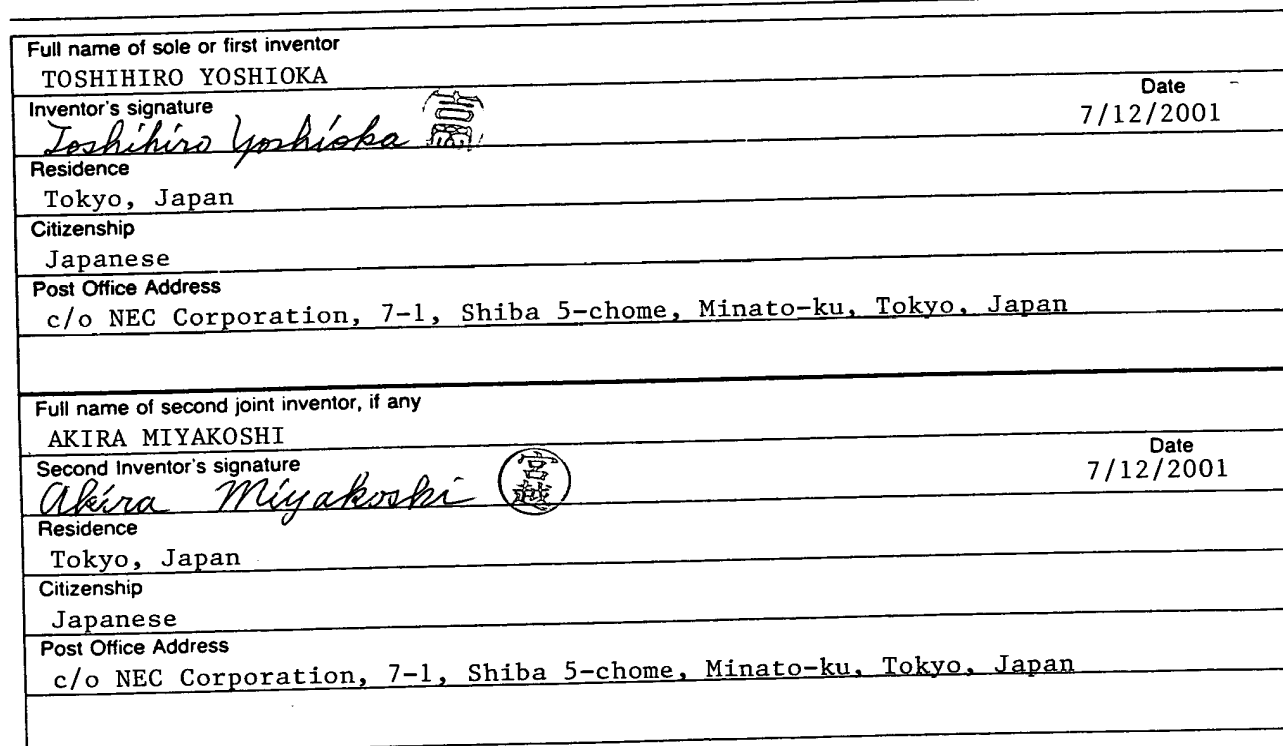 Full name of sole or first inventor
TOSHIHIRO YOSHIOKA
Inventor's signature
Toshihiro Yoshioka 吉岡
Date
7/12/2001
Residence
Tokyo, Japan
Citizenship
Japanese
Post Office Address
c/o NEC Corporation, 7-1, Shiba 5-chome, Minato-ku, Tokyo, Japan
Full name of second joint inventor, if any
AKIRA MIYAKOSHI
Second Inventor's signature
Akira Miyakoshi 宮越
Date
7/12/2001
Residence
Tokyo, Japan
Citizenship
Japanese
Post Office Address
c/o NEC Corporation, 7-1, Shiba 5-chome, Minato-ku, Tokyo, Japan